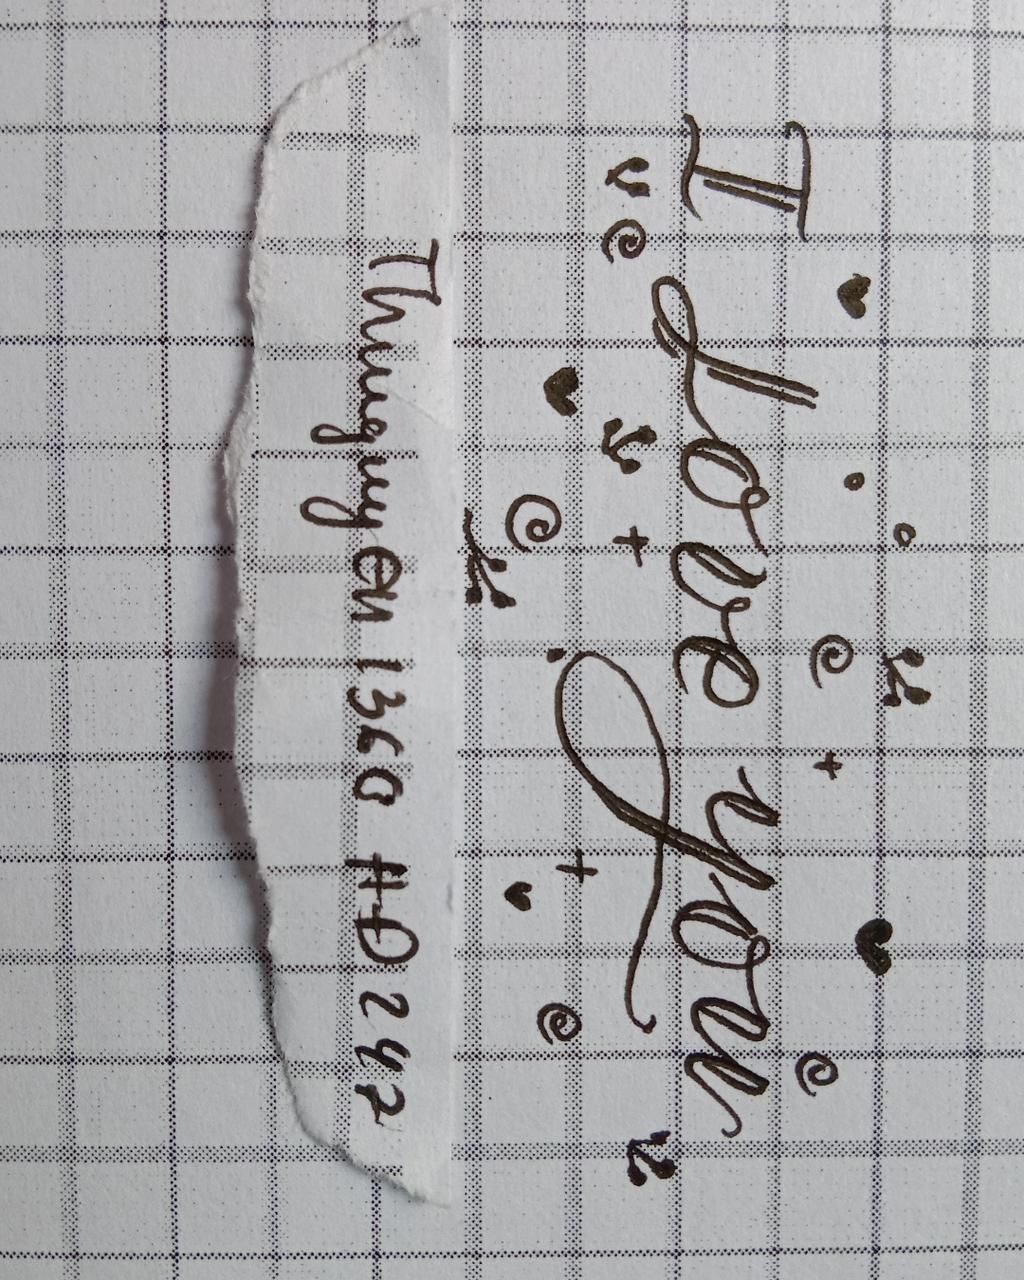 I Love you
Thuynguyen 1360 HD 247